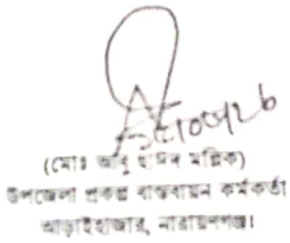 (মোঃ আবু হাসন মল্লিক)
উপজেলা প্রকল্প বাস্তবায়ন কর্মকর্তা
আড়াইহাজার, নারায়ণগঞ্জ।